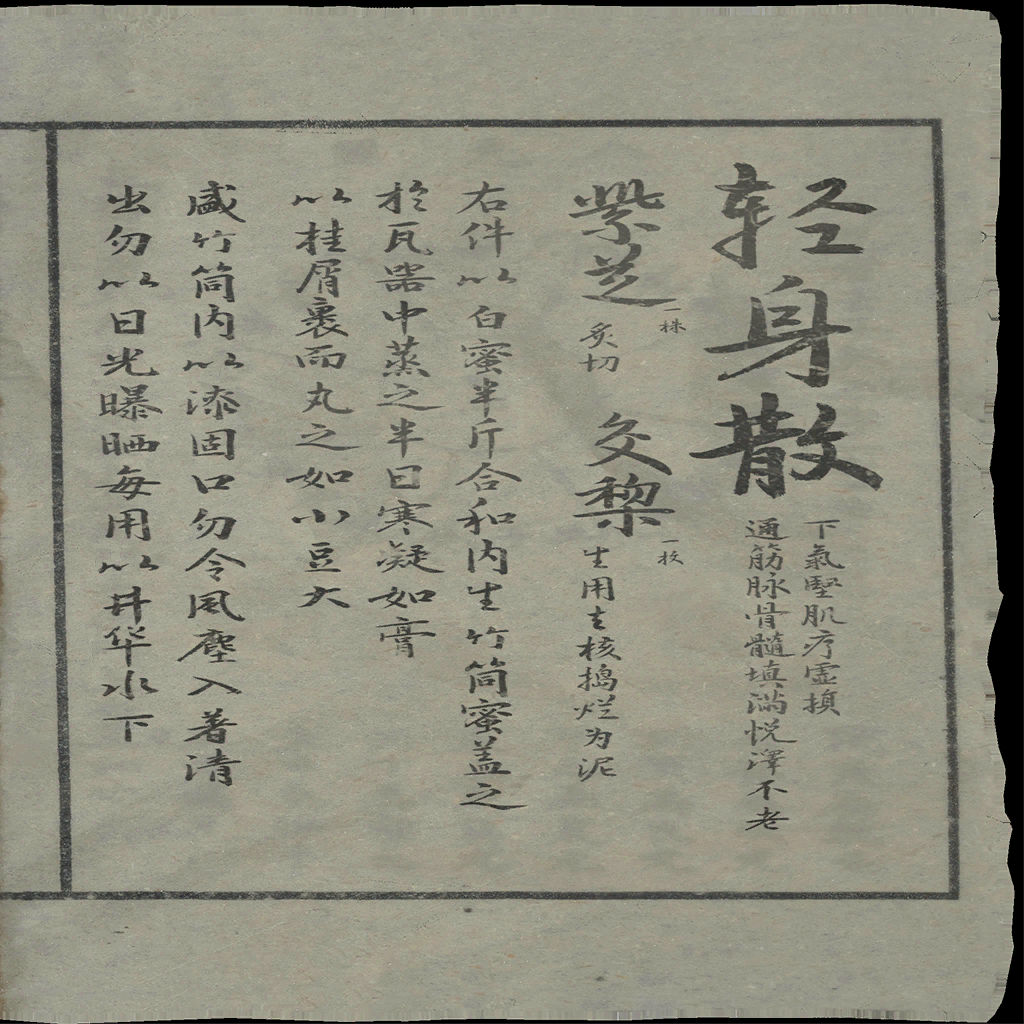 轻身散
下氣堅肌疗虚損
通筋脉骨髓填满悦澤不老
紫芝
一株
炙切
交棃
一枚
生用去核搗烂为泥
右件以白蜜半斤合和内生竹筒蜜盖之
於瓦器中蒸之半日寒凝如膏
以桂屑裹而丸之如小豆大
盛竹筒内以漆固口勿令風塵入著清
出勿以日光曝晒每用以井华水下